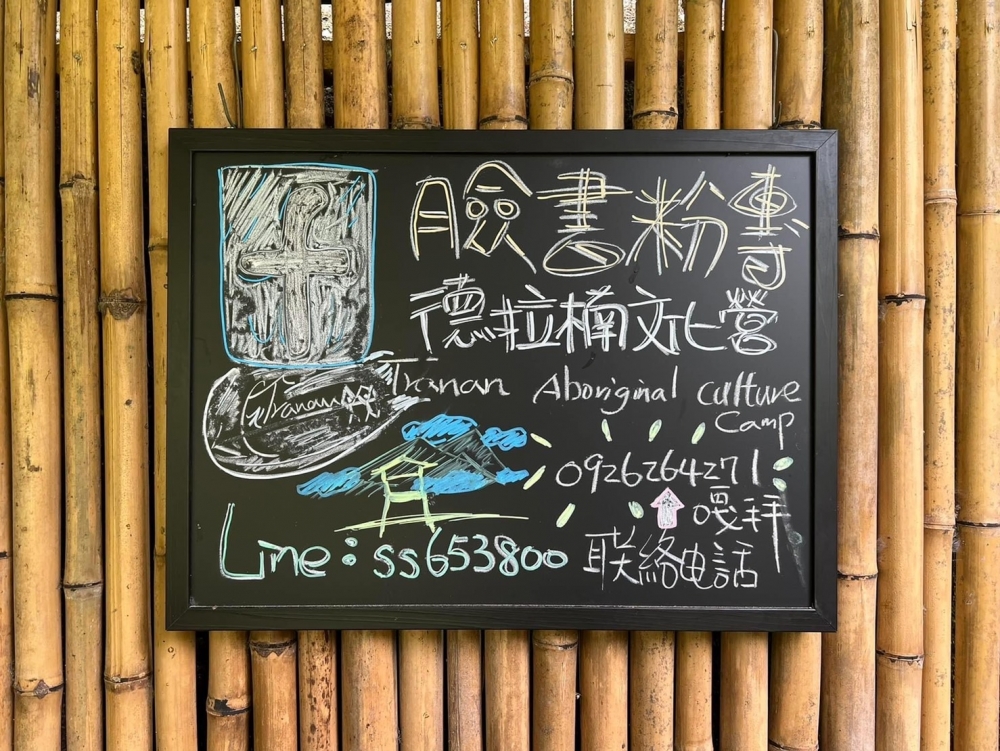 臉書粉專
德拉楠文化營
Tranan Aboriginal culture
Camp
0926264271
嘎拜
Line:ss653800
联絡電話